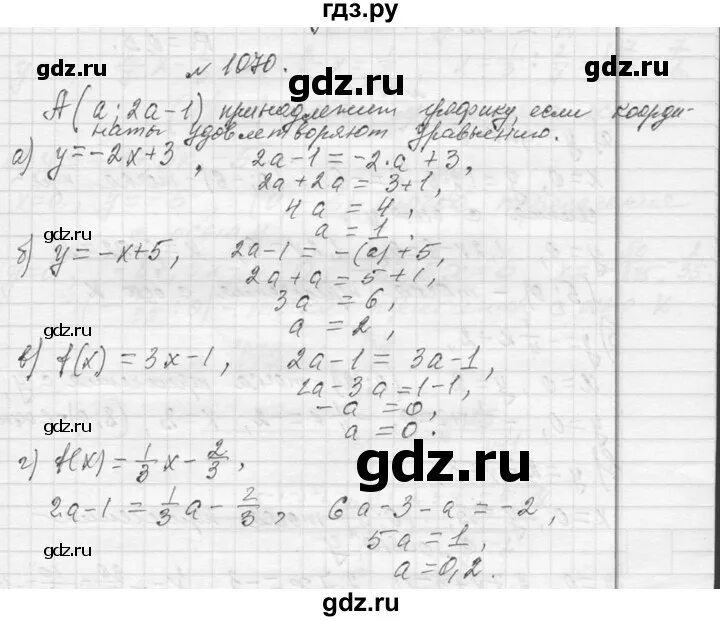 гдз.ру
№ 1070.
gdz.ru
A(a; 2a-1) принадлежит графику, если коорди-
наты удовлетворяют уравнению.
а) y=-2x+3, 2a-1=-2·a+3,
2a+2a=3+1,
4a=4,
gdz.ru gdz.ru
a=1.
б) y=-x+5, 2a-1=-(a)+5,
2a+a=5+1,
3a=6,
gdz.ru
a=2,
в) f(x)=3x-1, 2a-1=3a-1,
2a-3a=1-1,
-a=0,
a=0.
gdz.ru
г) f(x)=1/3x-2/3,
2a-1=1/3a-2/3, 6a-3-a=-2,
5a=1,
gdz.ru
a=0,2.
gdz.ru
gdz.ru